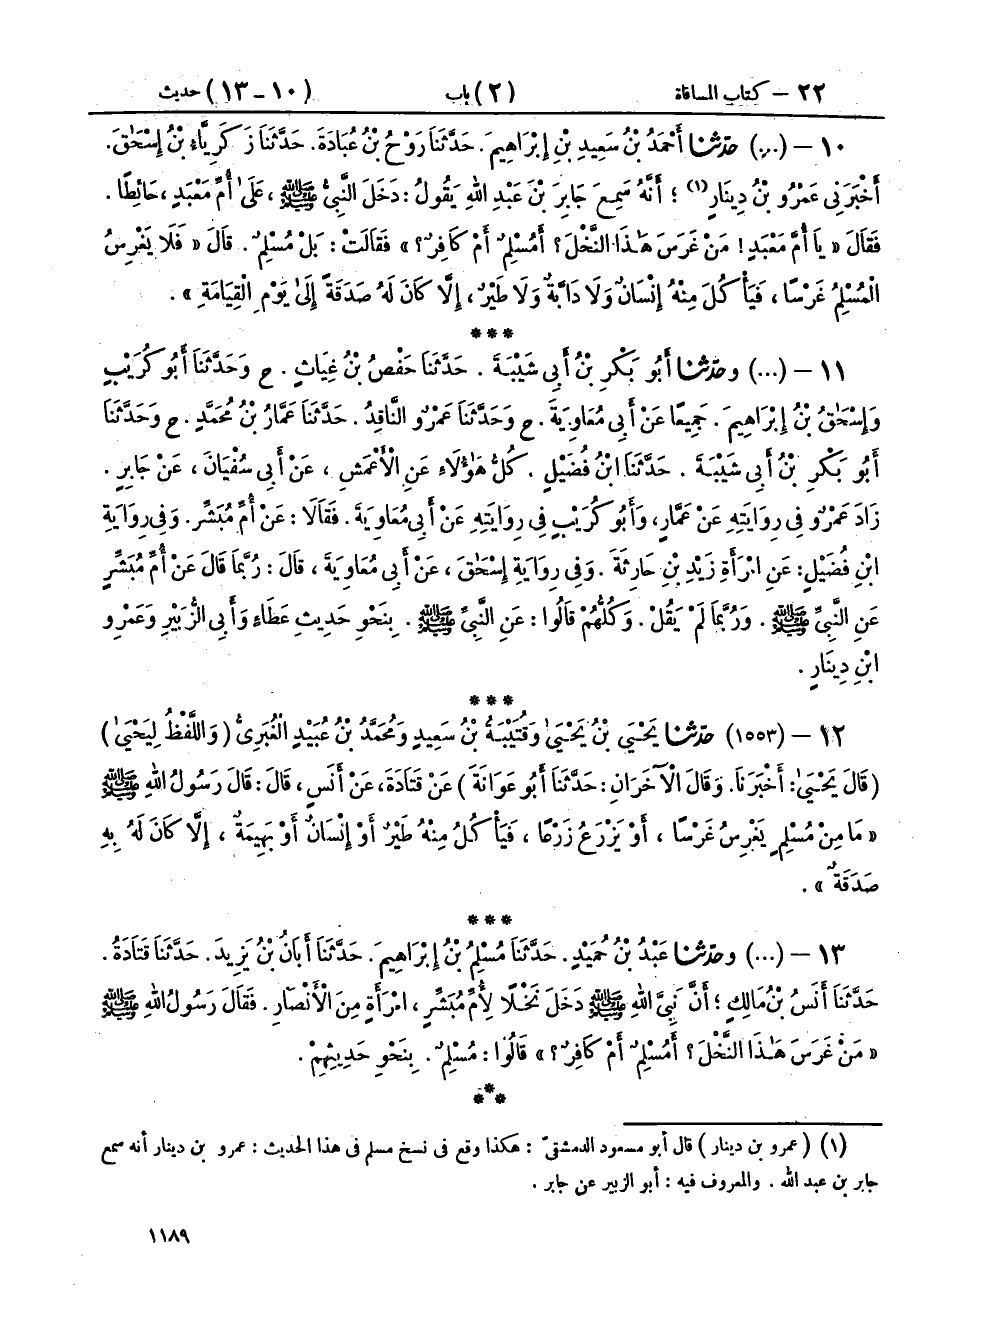 ٢٢ – كتاب المساقاة (٢) باب (١٠-١٣) حديث
١٠ – (...) حدّثنا أَحْمَدُ بْنُ سَعِيدِ بْنِ إِبْرَاهِيمَ. حَدَّثَنَا رَوْحُ بْنُ عُبَادَةَ. حَدَّثَنَا زَكَرِيَّاءِ بْنُ إِسْحَٰقَ.
أَخْبَرَنِى عَمْرُو بْنُ دِينَارٍ (١) ؛ أَنَّهُ سَمِعَ جَابِرَ بْنَ عَبْدِ اللهِ يَقُولُ : دَخَلَ النَّبِيُّ ﷺ ، عَلَىٰ أُمِّ مَعْبَدٍ ، حَائِطًا .
فَقَالَ « يَا أُمَّ مَعْبَدٍ ! مَنْ غَرَسَ هَٰذَا النَّخْلَ ؟ أَمُسْلِمٌ أَمْ كَافِرٌ ؟ » فَقَالَتْ : بَلْ مُسْلِمٌ . قَالَ « فَلَا يَغْرِسُ
الْمُسْلِمُ غَرْسًا ، فَيَأْكُلَ مِنْهُ إِنْسَانٌ وَلَا دَابَّةٌ وَلَا طَيْرٌ ، إِلَّا كَانَ لَهُ صَدَقَةً إِلَىٰ يَوْمِ الْقِيَامَةِ » .
***
١١ – (...) وحدّثنا أَبُو بَكْرِ بْنُ أَبِى شَيْبَةَ . حَدَّثَنَا حَفْصُ بْنُ غِيَاثٍ . ح وَحَدَّثَنَا أَبُو كُرَيْبٍ
وَإِسْحَٰقُ بْنُ إِبْرَاهِيمَ . جَمِيعًا عَنْ أَبِى مُعَاوِيَةَ . ح وَحَدَّثَنَا عَمْرٌو النَّاقِدُ . حَدَّثَنَا عَمَّارُ بْنُ مُحَمَّدٍ . ح وَحَدَّثَنَا
أَبُو بَكْرِ بْنُ أَبِى شَيْبَةَ . حَدَّثَنَا ابْنُ فُضَيْلٍ . كُلُّ هَٰؤُلَاءِ عَنِ الْأَعْمَشِ ، عَنْ أَبِى سُفْيَانَ ، عَنْ جَابِرٍ .
زَادَ عَمْرٌو فِى رِوَايَتِهِ عَنْ عَمَّارٍ ، وَأَبُو كُرَيْبٍ فِى رِوَايَتِهِ عَنْ أَبِى مُعَاوِيَةَ . فَقَالَا : عَنْ أُمِّ مُبَشِّرٍ . وَفِى رِوَايَةِ
ابْنِ فُضَيْلٍ : عَنِ امْرَأَةِ زَيْدِ بْنِ حَارِثَةَ . وَفِى رِوَايَةِ إِسْحَٰقَ ، عَنْ أَبِى مُعَاوِيَةَ ، قَالَ : رُبَّمَا قَالَ عَنْ أُمِّ مُبَشِّرٍ
عَنِ النَّبِيِّ ﷺ . وَرُبَّمَا لَمْ يَقُلْ . وَكُلُّهُمْ قَالُوا : عَنِ النَّبِيِّ ﷺ . بِنَحْوِ حَدِيثِ عَطَاءٍ وَأَبِى الزُّبَيْرِ وَعَمْرِو
ابْنِ دِينَارٍ .
***
١٢ – (١٥٥٣) حدّثنا يَحْيَىٰ بْنُ يَحْيَىٰ وَقُتَيْبَةُ بْنُ سَعِيدٍ وَمُحَمَّدُ بْنُ عُبَيْدٍ الْغُبَرِىُّ ( وَاللَّفْظُ لِيَحْيَىٰ )
( قَالَ يَحْيَىٰ : أَخْبَرَنَا . وَقَالَ الْآخَرَانِ : حَدَّثَنَا أَبُو عَوَانَةَ ) عَنْ قَتَادَةَ ، عَنْ أَنَسٍ ، قَالَ : قَالَ رَسُولُ اللهِ ﷺ
« مَا مِنْ مُسْلِمٍ يَغْرِسُ غَرْسًا ، أَوْ يَزْرَعُ زَرْعًا ، فَيَأْكُلُ مِنْهُ طَيْرٌ أَوْ إِنْسَانٌ أَوْ بَهِيمَةٌ ، إِلَّا كَانَ لَهُ بِهِ
صَدَقَةٌ » .
***
١٣ – (...) وحدّثنا عَبْدُ بْنُ حُمَيْدٍ . حَدَّثَنَا مُسْلِمُ بْنُ إِبْرَاهِيمَ . حَدَّثَنَا أَبَانُ بْنُ يَزِيدَ . حَدَّثَنَا قَتَادَةُ .
حَدَّثَنَا أَنَسُ بْنُ مَالِكٍ ؛ أَنَّ نَبِيَّ اللهِ ﷺ دَخَلَ نَخْلًا لِأُمِّ مُبَشِّرٍ ، امْرَأَةٍ مِنَ الْأَنْصَارِ . فَقَالَ رَسُولُ اللهِ ﷺ
« مَنْ غَرَسَ هَٰذَا النَّخْلَ ؟ أَمُسْلِمٌ أَمْ كَافِرٌ ؟ » قَالُوا : مُسْلِمٌ . بِنَحْوِ حَدِيثِهِمْ .
***
(١) ( عمرو بن دينار ) قال أبو مسعود الدمشقىّ : هكذا وقع فى نسخ مسلم فى هذا الحديث : عمرو بن دينار أنه سمع
جابر بن عبد الله . والمعروف فيه : أبو الزبير عن جابر .
١١٨٩